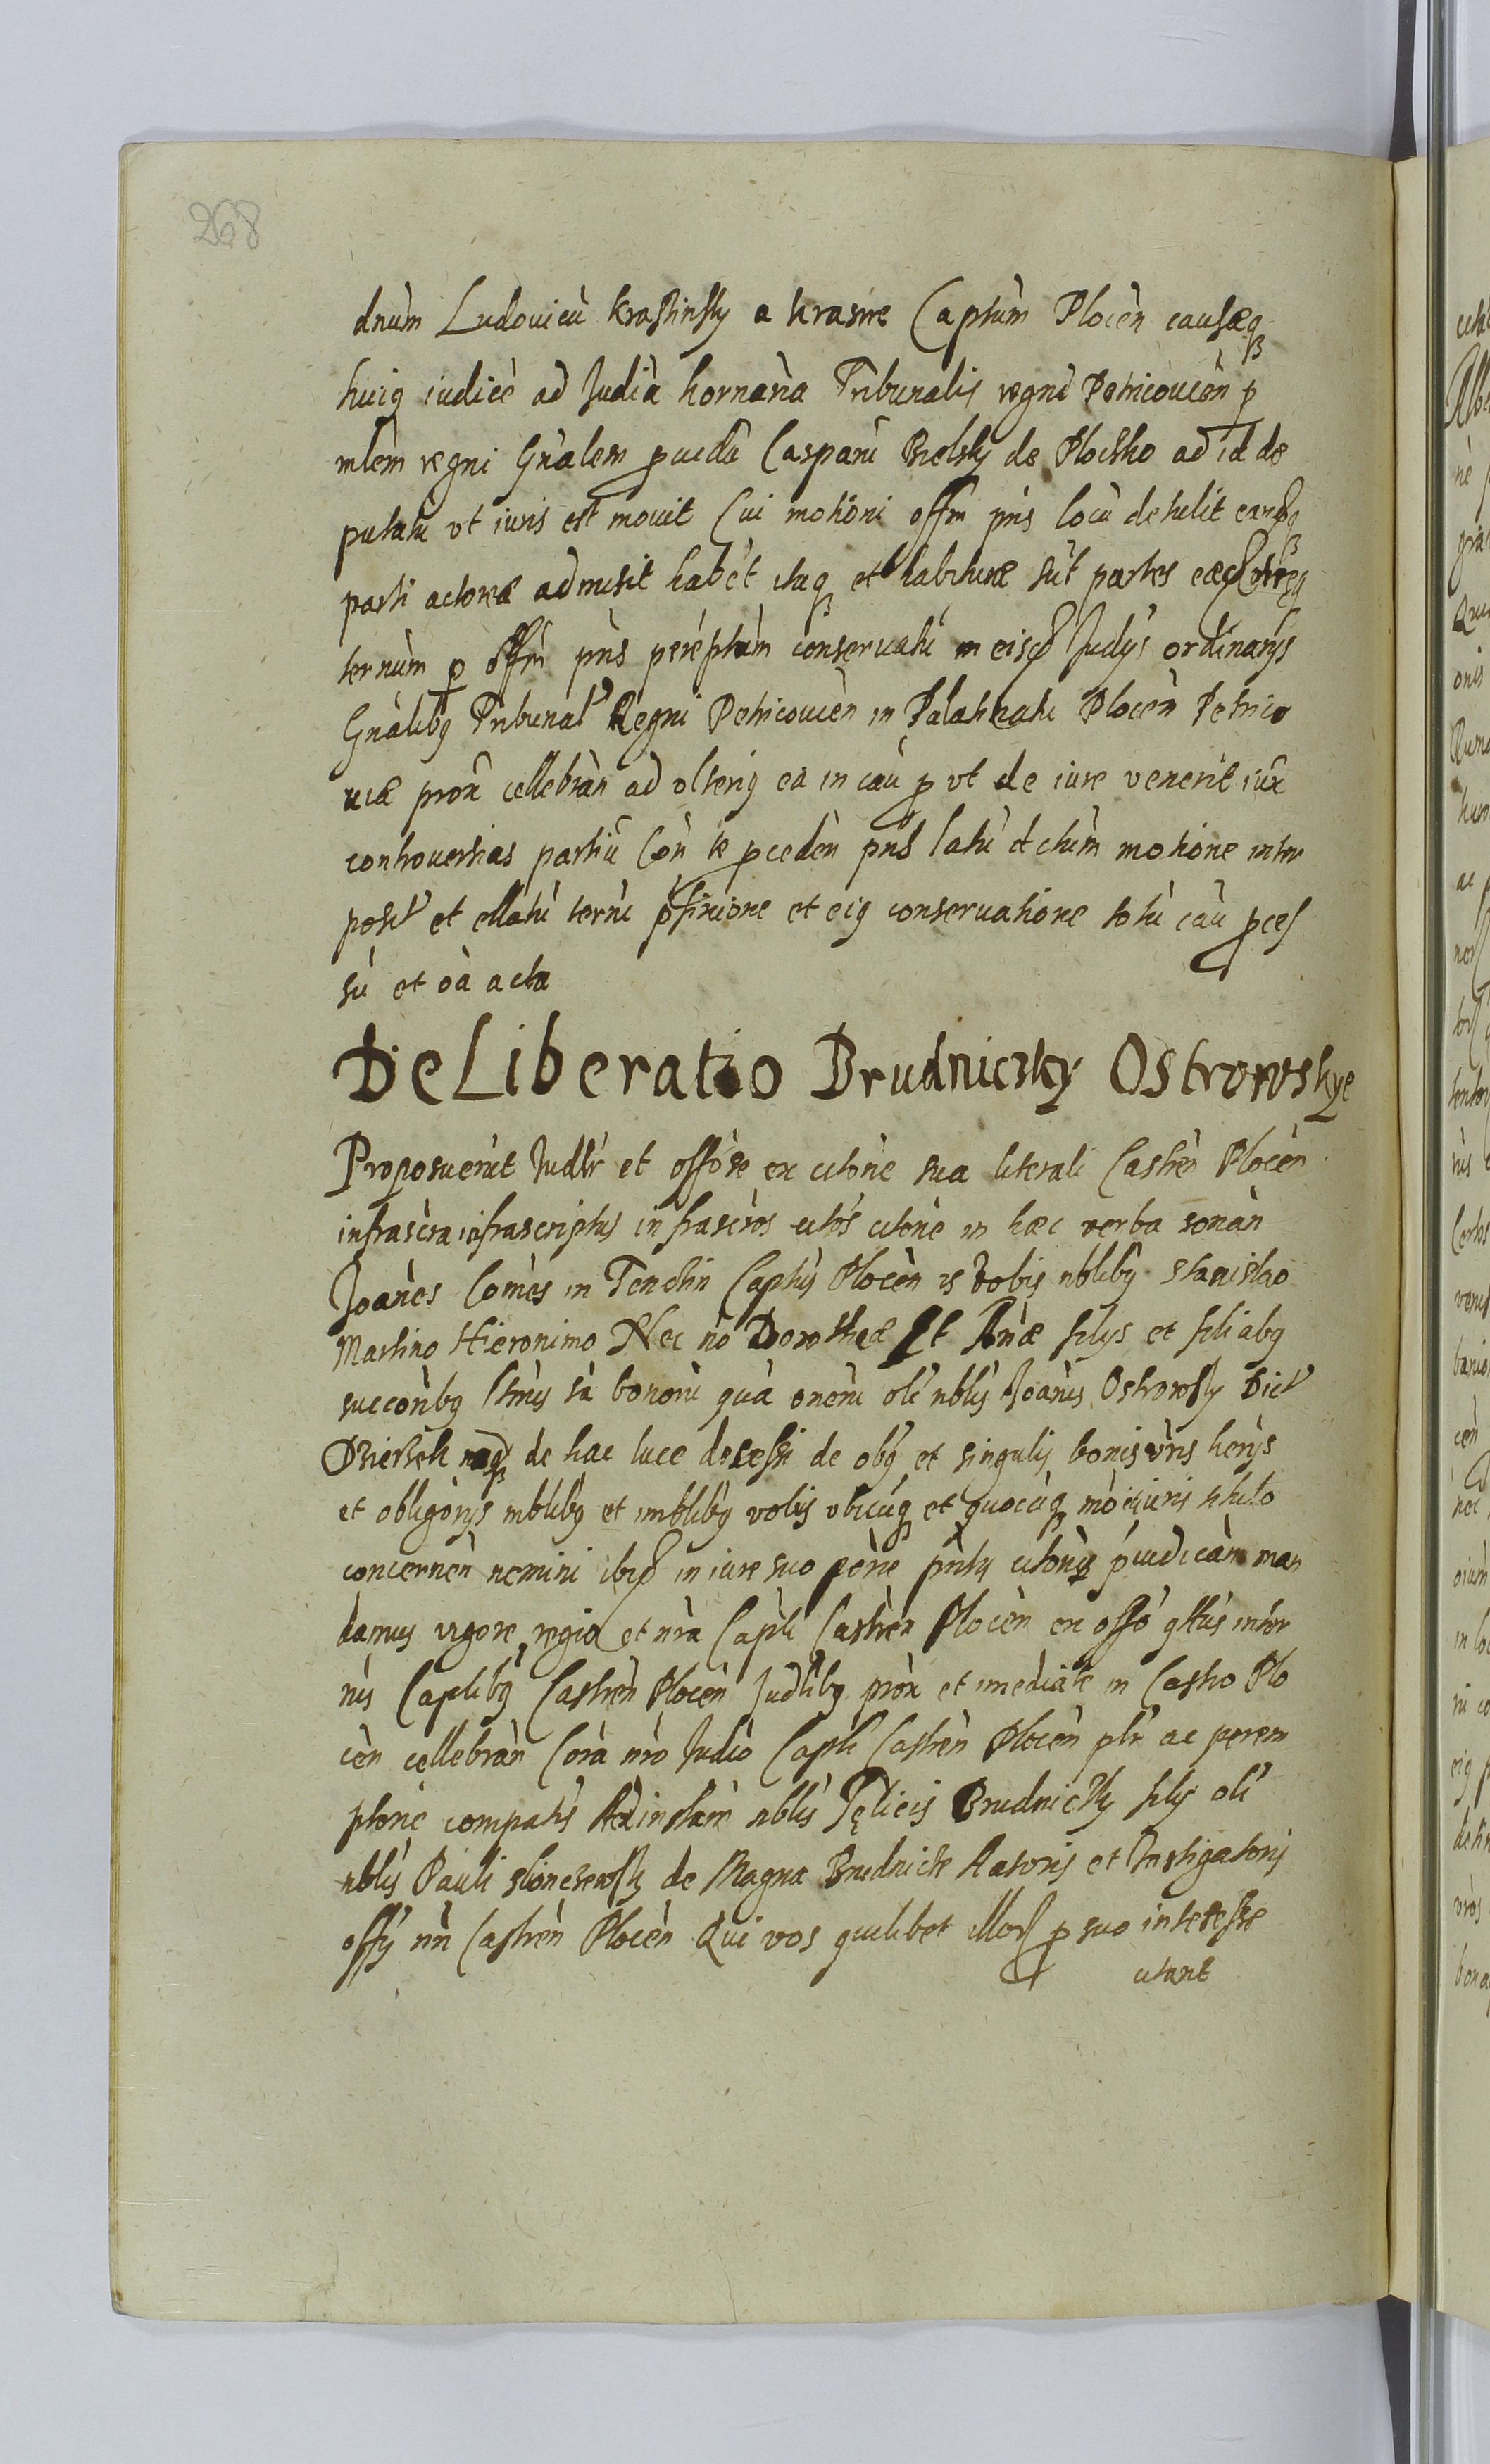 268
dnùm Ludouicù Krassinsky a Krasne Captùm Plocèn causæq
huiq iudicè ad Judia hornaria Tribunalis regni Petricouièn p
mlèm regni Gnàlem prouidù Casparù Bielsky de Plocsko ad id de
putatù vt iuris est mouit Cui motioni offm pns locù detulit eamq
parti actoreæ admisit habèt itaq et habituræ sùt partes eæd
ternùm p offm pns perèptùm conseruatù in eisd Judys ordinarys
Gnàlibq Tribunal Regni Petricouièn in Palatinatu Plocèn Petrico
uiæ prox cellebràn ad vlteriq eà in caù p vt de iure venerit iùx
controuersias partiù Còn te pcedèn pns latù dctùm motione inter
posit et ellatù ternì et eiq conseruatione totù càu pces
sù et oà acta
DeLiberatio Brudniczky Ostrowskye
Proposuerùt Judlr et offose ex citone sua literali Castrèn Plocèn
infrascra infrascriptus infrascros citos citone in hæc verba sonàn
Joànes Comes in Tenchin Captùs Plocèn vobis nblibq Stanislao
Martino Hieronimo Nec nò Dorotheæ Et Annæ filys et filiabq
succoribq ltmis tà bonorù quà onerù oli nblis Joànis Ostrowsky Dict
de hac luce decessi de oibq et singulis bonis vris herys
et obligorys mblibq et imblibq vobis vbicùq et quocùq mò et iuris titulo
concernèn nemini ibid in iure suo pèrte citonis piudicàn man
damus vigore regia et nrà Capli Castrèn Plocèn ex offo qttùs inter
nis Caplibq Castrèn Plocèn Judlibq prox et imediate in Castro Plo
cèn cellebràn Corà nrò Judio Capli Castrèn Plocèn plr ac perem
ptorie compatis Ad instam nblis Fęlicis Brudnicky filij oli
nblis Pauli de Magna Brudnicze Actoris et Instigatoris
offy nri Castrèn Plocèn Qui vos quilibet illor p suo interesse
citant